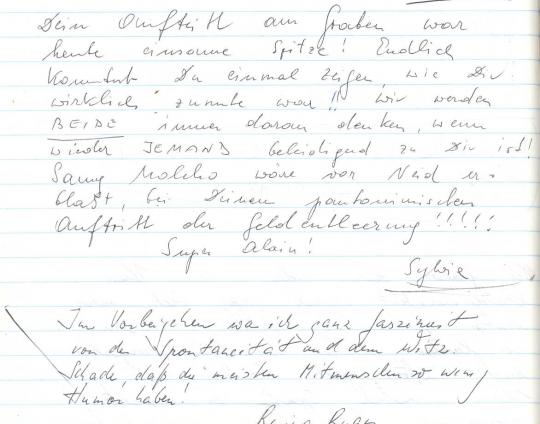 Dein Auftritt am Graben war
heute einsame Spitze! Endlich
konntest Du einmal zeigen, wie Dir
wirklich zumute war!! Wir werden
BEIDE immer daran denken, wenn
wieder JEMAND beleidigend zu Dir ist!
Samy Molcho wäre vor Neid er-
blaßt, bei Deinem pantomimischen
Auftritt der Geldentleerung!!!!!
Super Alain!
Sylvia
Im Vorbeigehen war ich ganz fasziniert
von der Spontaneität und dem Witz.
Schade, daß die meisten Mitmenschen so wenig
Humor haben!